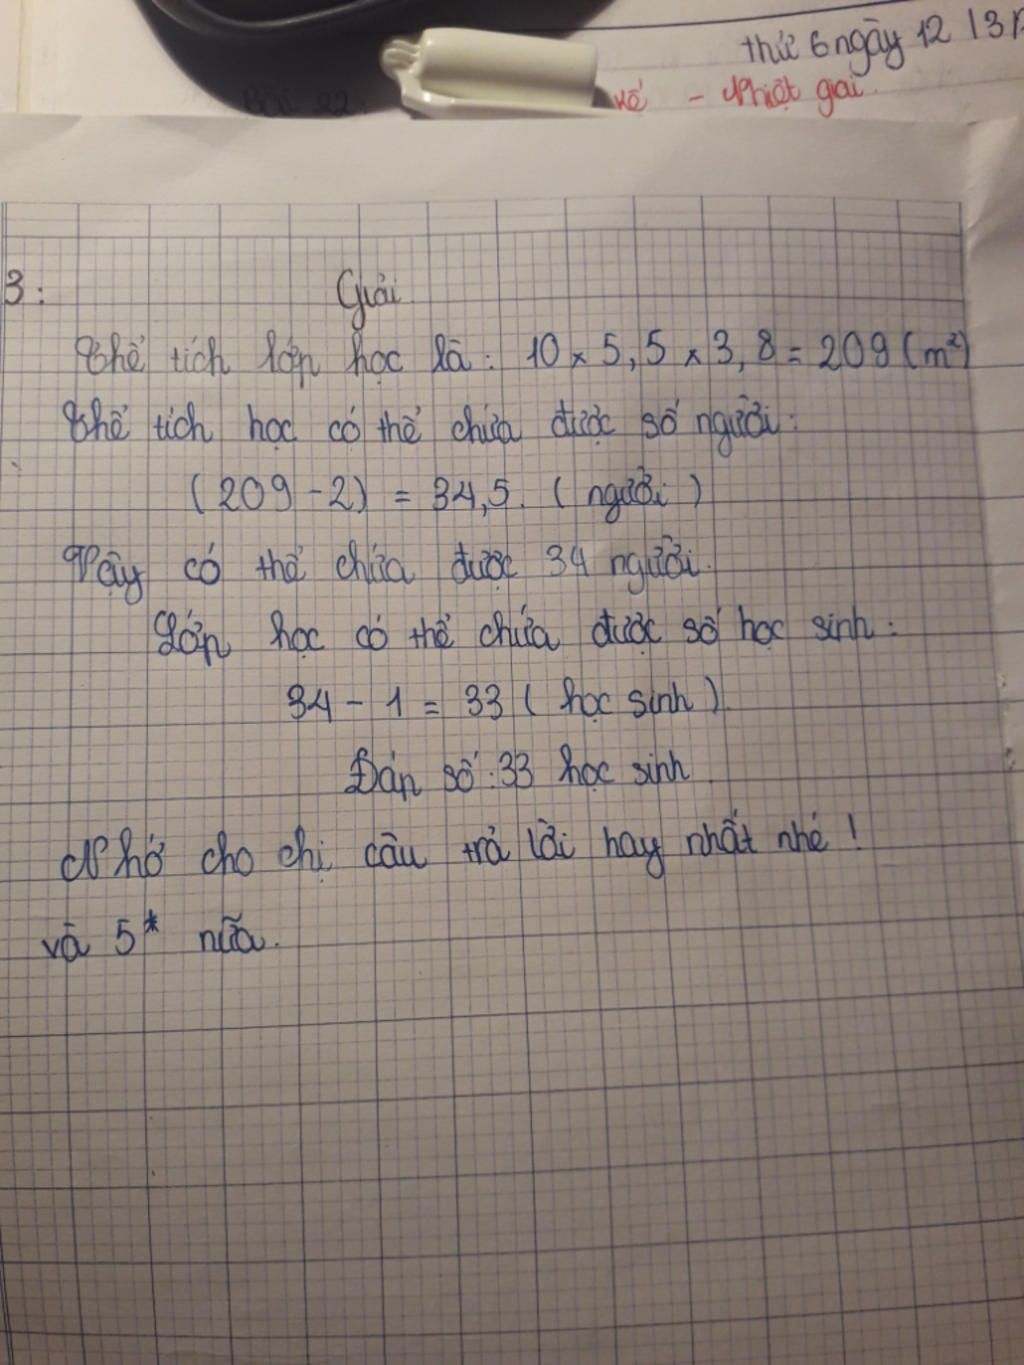 thứ 6 ngày 12 / 3 /
Bài 22
kế - Nhiệt giai.
3:
Giải
Thể tích lớp học là: 10 x 5,5 x 3,8 = 209 (m²)
Thể tích học có thể chứa được số người:
(209 - 2) = 34,5. (người)
Vậy có thể chứa được 34 người.
Lớp học có thể chứa được số học sinh:
34 - 1 = 33 (học sinh).
Đáp số: 33 học sinh.
Nhớ cho chị câu trả lời hay nhất nhé!
và 5* nữa.